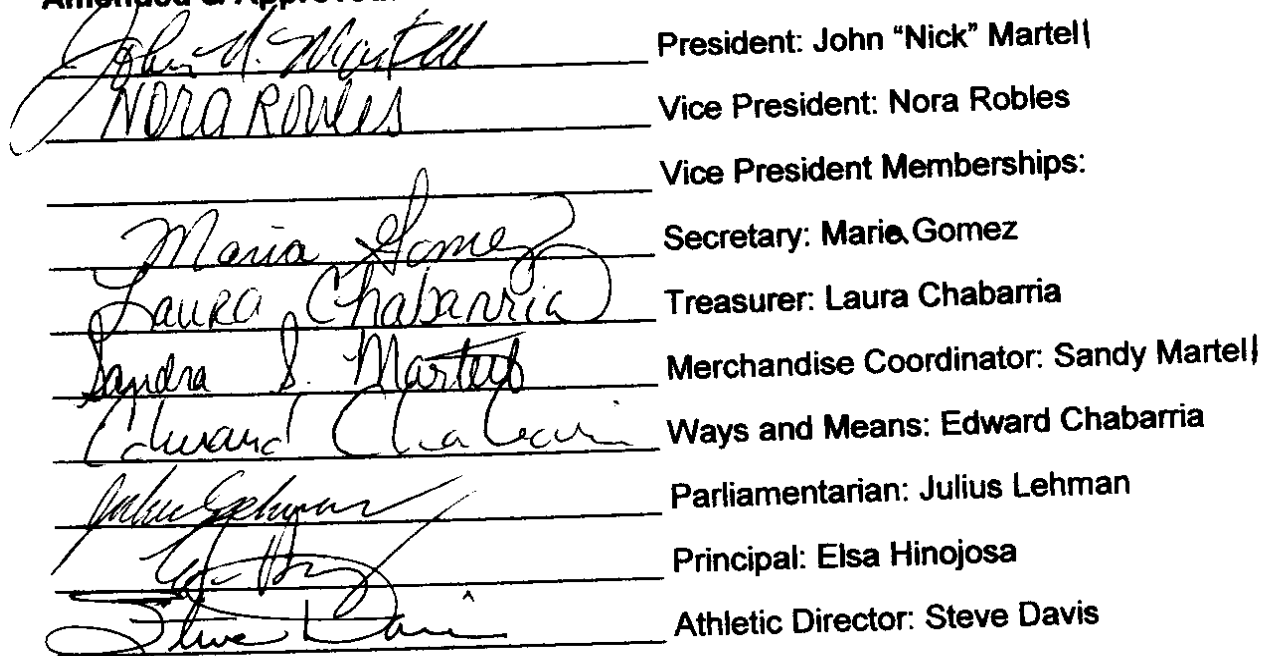 Amended & Approved
John N. Martell President: John “Nick” Martell
Nora Robles Vice President: Nora Robles
Vice President Memberships:
Maria Gomez Secretary: Maria Gomez
Laura Chabarria Treasurer: Laura Chabarria
Sandra S. Martell Merchandise Coordinator: Sandy Martell
Edward Chabarria Ways and Means: Edward Chabarria
Parliamentarian: Julius Lehman
Principal: Elsa Hinojosa
Steve Davis Athletic Director: Steve Davis